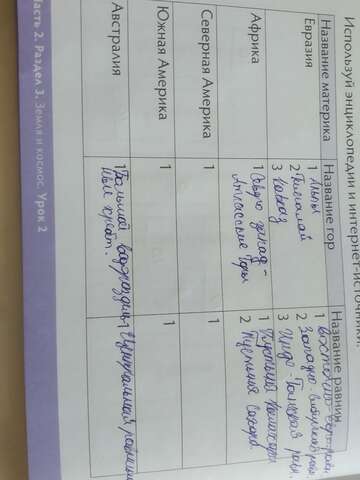 Используй энциклопедии и интернет-источники.
Название материка
Название гор
Название равнин
Евразия
1 Альпы
2 Гималаи
3 Кавказ
1 Восточно-европейская
2 Западно-сибирская равн.
3 Индо-Гангская равн.
Африка
1
Атласские Горы
1 Пустыня Калахари
2 Пустыня Сахара
Северная Америка
1
1
Южная Америка
1
1
Австралия
1 Большой водоразделы
ный хребет.
1 Центральная равнина
Часть 2. Раздел 3. Земля и космос. Урок 2